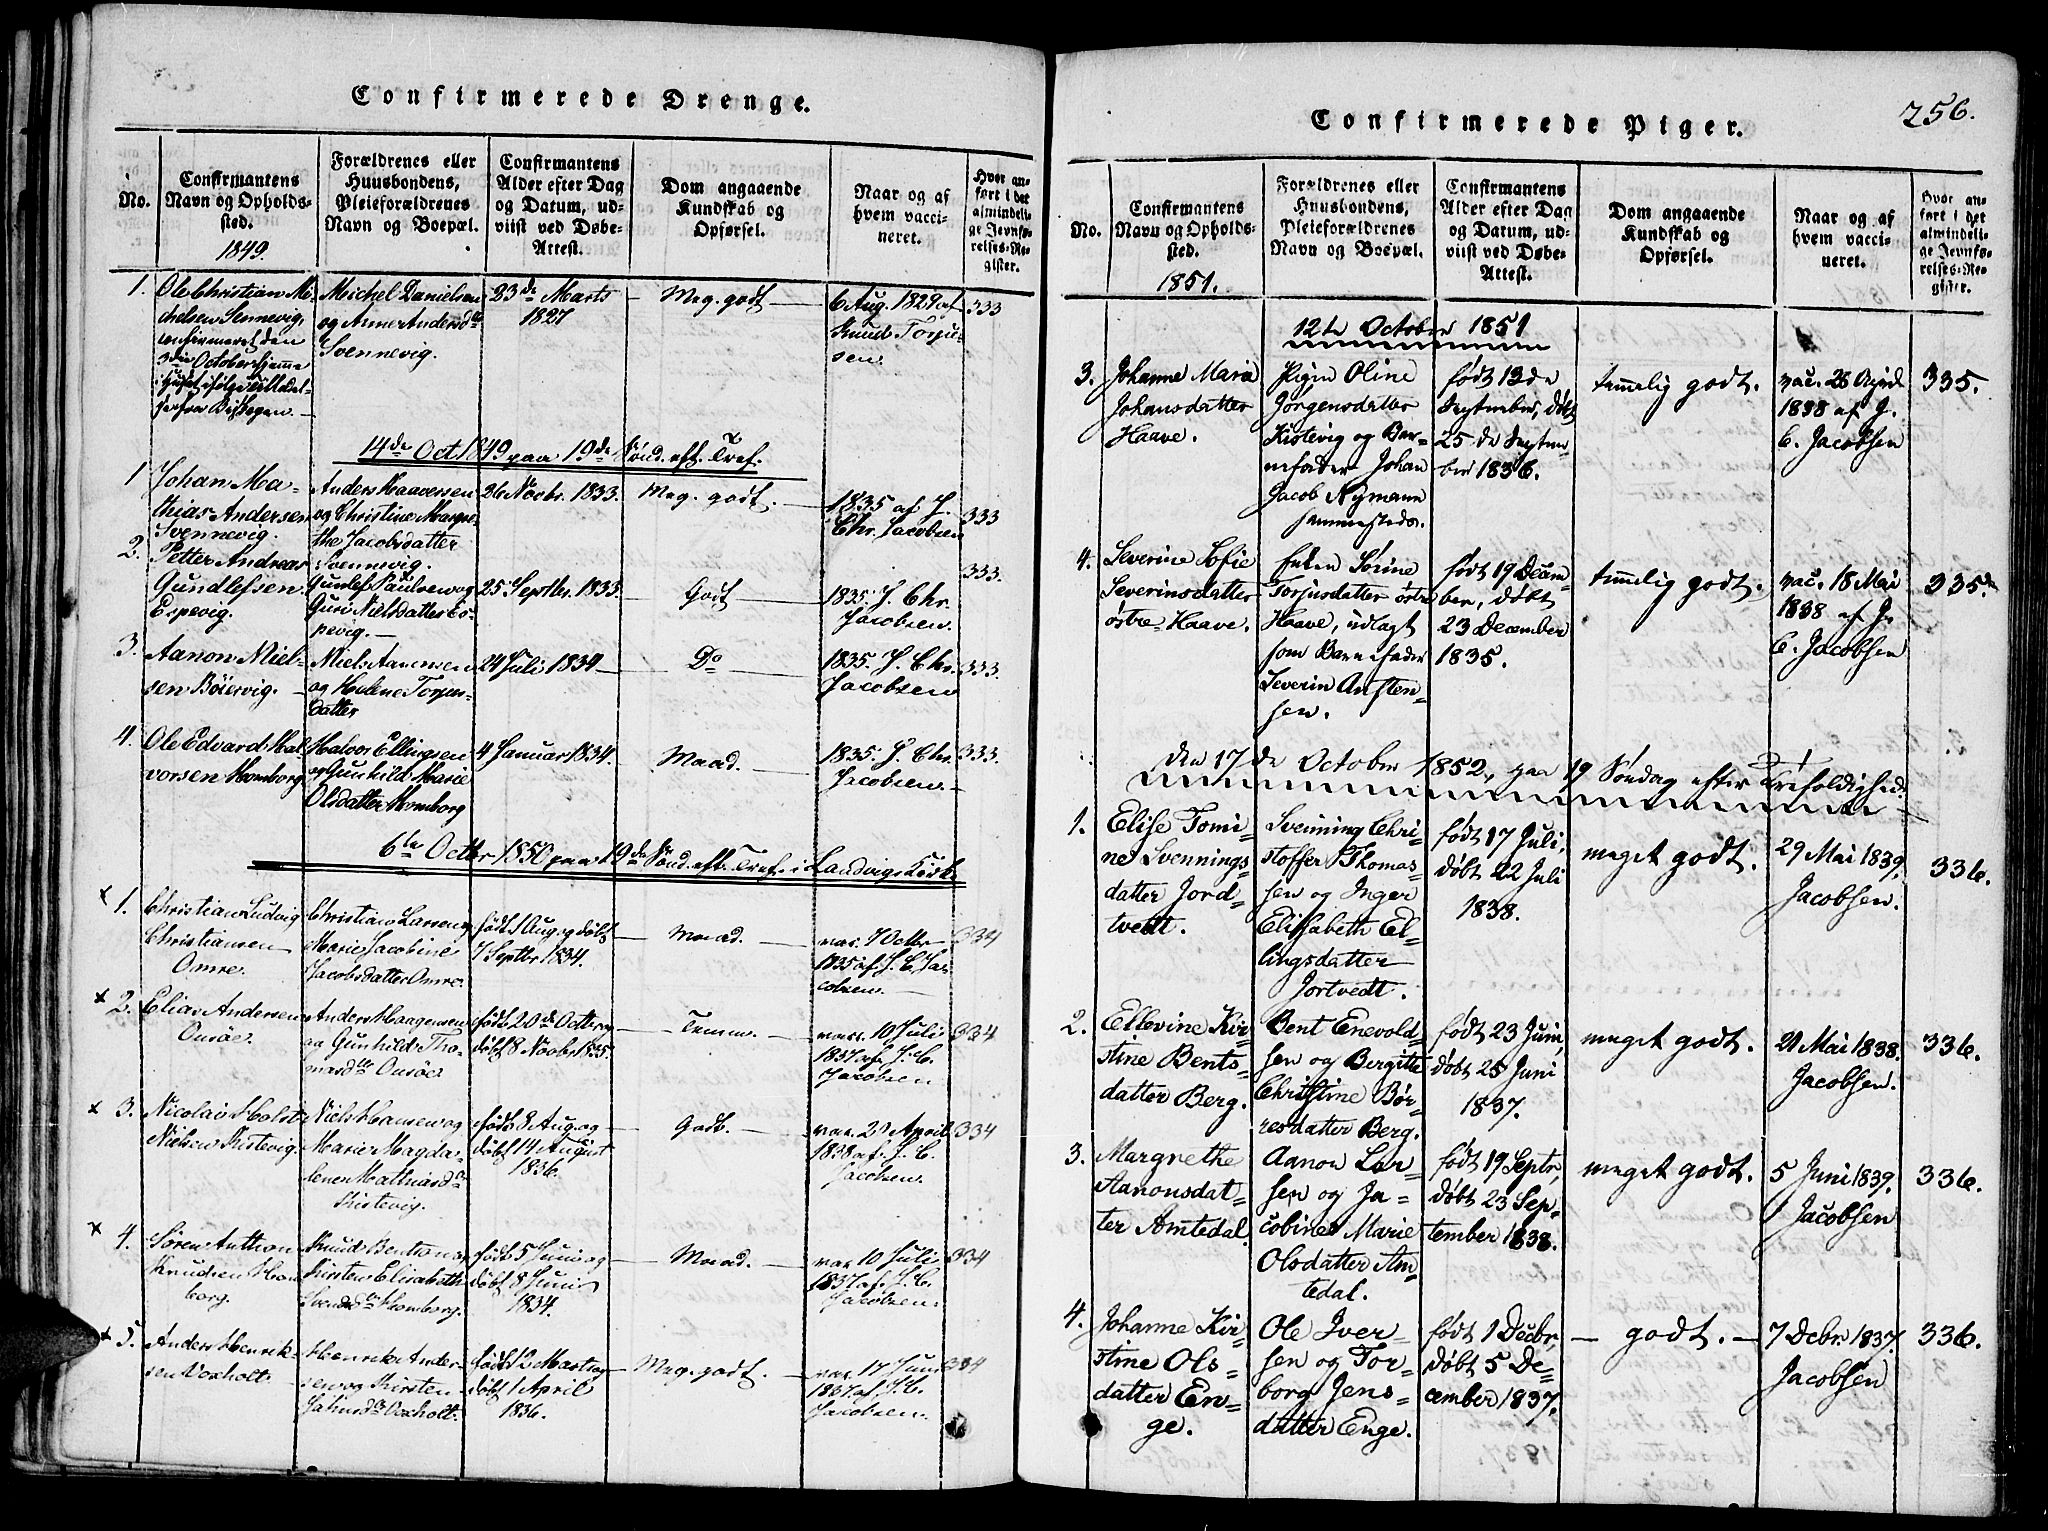 Confirmerede Drenge.
No.
Confirmantens
Navn og Opholds-
sted.
1849.
Forældrenes eller
Huusbondens,
Pleieforældrenes
Navn og Boepæl.
Confirmantens
Alder efter Dag
og Datum, ud-
viist ved Døbe-
Attest.
Dom angaaende
Kundskab og
Opførsel.
Naar og af
hvem vacci-
neret.
Hvor an-
ført i det
almindeli-
ge Jevnfø-
relses-Re-
gister.
1.
Ole Christian Mi-
chelsen Svennevig,
confirmeret den
3die October hjemme
i Huset ifølge Tilladel-
se fra Biskopen.
Michel Danielsen
og Anne Andersd.
Svennevig.
23de Marts
1827
Meg. godt
6 Aug. 1829 af
Knud Torju-
sen.
333
14de Oct 1849 paa 19de Sønd. eft. Tref.
1
Johan Ma-
thias Andersen
Svennevig.
Anders Haaversen
og Christine Margre-
the Jacobsdatter
Svennevig.
26 Novbr. 1833.
Meg. godt.
1835 af J.
Chr. Jacobsen
333
2.
Petter Andreas
Gundlefsen
Espevig.
Gunlef Paulsen og
Guri Nielsdatter Es-
pevig.
25 Septbr. 1833
Godt
1835. J. Chr.
Jacobsen.
333.
3.
Aanon Niel-
sen Böiervig.
Niels Aanensen
og Helene Torjus-
datter
24 Juli 1834
Do
1835. J. Chr.
Jacobsen
333.
4.
Ole Edvard Hal-
vorsen Homborg.
Halvor Ellingsen
og Gunhild Marie
Olsdatter Homborg
4 Januar 1834.
Maad.
1835 J. Chr.
Jacobsen.
333.
6te Octbr 1850 paa 19de Sønd. eft. Tref. i Landvigs Kirke
x 1.
Christian Ludvig
Christiansen
Omre.
Christian Larsen og
Marie Jacobine
Jacobsdatter Omre.
født 1 Aug. og døbt
7 Septbr 1834.
Maad.
vac. 7 Octbr
1835 af J. C. Ja-
cobsen
334
x 2.
Elias Andersen
Ousöe.
Anders Haagensen
og Gunhild Tho-
masd. Ousöe
født 20de Octbr og
døbt 8 Novbr 1835.
Temm.
vac. 10 Juli
1837 af J. C.
Jacobsen
334
x 3.
Nicolai Holst
Nielsen Kistevig.
Niels Hansen og
Marie Magda-
lene Mathiasd.
Kistevig.
født 8 Aug. og
døbt 14 August
1836.
Godt.
vac. 20 April
1838 af J. C.
Jacobsen.
334
x 4.
Søren Anthon
Knudsen Hom-
borg.
Knud Bentson og
Kirsten Elisabeth
Svendsd. Homborg.
født 5 Juni og
døbt 8 Juni
1834.
Maad.
vac 10 Juli
1837 af J. C.
Jacobsen.
334
x 5.
Anders Henrik-
sen Voxholt.
Henrik Ander-
sen og Kirsten
Jahnsd. Voxholt.
født 12 Marts og
døbt 1 April
1836.
Meg. godt.
vac. 17 Juni
1837 af J. C.
Jacobsen.
334
256.
Confirmerede Piger.
No.
Confirmantens
Navn og Opholds-
sted.
1851.
Forældrenes eller
Huusbondens,
Pleieforældrenes
Navn og Boepæl.
Confirmantens
Alder efter Dag
og Datum, ud-
viist ved Døbe-
Attest.
Dom angaaende
Kundskab og
Opførsel.
Naar og af
hvem vacci-
neret.
Hvor an-
ført i det
almindeli-
ge Jevnfø-
relses-Re-
gister.
12te October 1851
3.
Johanne Maria
Johansdatter
Haave.
Pigen Oline
Jörgensdatter
Kistevig og Bar-
nefader Johan
Jacob Nymann
sammesteds.
født 13de
September, døbt
25de Septem-
ber 1836.
temmelig godt.
vac. 26 April
1838 af J.
C. Jacobsen
335.
4.
Severine Sofie
Severinsdatter
östre-Haave.
Enken Sörine
Torjusdatter östre
Haave, udlagt
som Barnefader
Severin Austen-
sen.
født 19 Decem-
ber, døbt
23 December
1835.
temmelig godt.
vac. 18 Mai
1838 af J.
C. Jacobsen
335.
den 17de October 1852, paa 19 Søndag efter Trefoldighed.
1.
Elise Tomi-
ne Svennings-
datter Jord-
tvedt.
Svenning Chri-
stoffer Thomas-
sen og Inger
Elisabeth El-
lingsdatter
Jortvedt.
født 17 Juli,
døbt 22 Juli
1838.
meget godt.
29 Mai 1839.
Jacobsen.
336.
2.
Ellevine Kir-
stine Bents-
datter Berg.
Bent Enevold-
sen og Bergitte
Christine Bör-
resdatter Berg.
født 23 Juni,
døbt 25 Juni
1837.
meget godt.
21 Mai 1838.
Jacobsen.
336.
3.
Margrethe
Aanonsdat-
ter Amtedal
Aanon Lar-
sen og Ja-
cobine Marie
Olsdatter Am-
tedal.
født 19 Septr,
døbt 23 Sep-
tember 1838.
meget godt.
5 Juni 1839.
Jacobsen
336.
4.
Johanne Kir-
stine Ols-
datter En-
ge.
Ole Iver-
sen og Tor-
borg Jens-
datter Enge.
født 1 Decbr,
døbt 5 De-
cember 1837.
godt.
7 Debr. 1837.
Jacobsen
336.